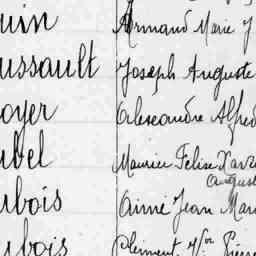 uin Armand Marie J
ussault Joseph Auguste
oyer Alexandre Alfred
ubel Maurice Felix Xavi
Auguste
ubois Aimé Jean Mari
ubois Clément Pierre